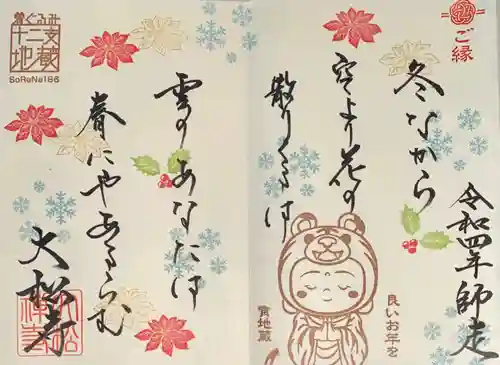 ご縁
冬ながら
空より花の
散りくるは
令和四年師走
良いお年を
寅地蔵
着ぐるみ
十二支
地蔵
SoRaNe186
雲のあなたは
春にやあるらむ
大松寺